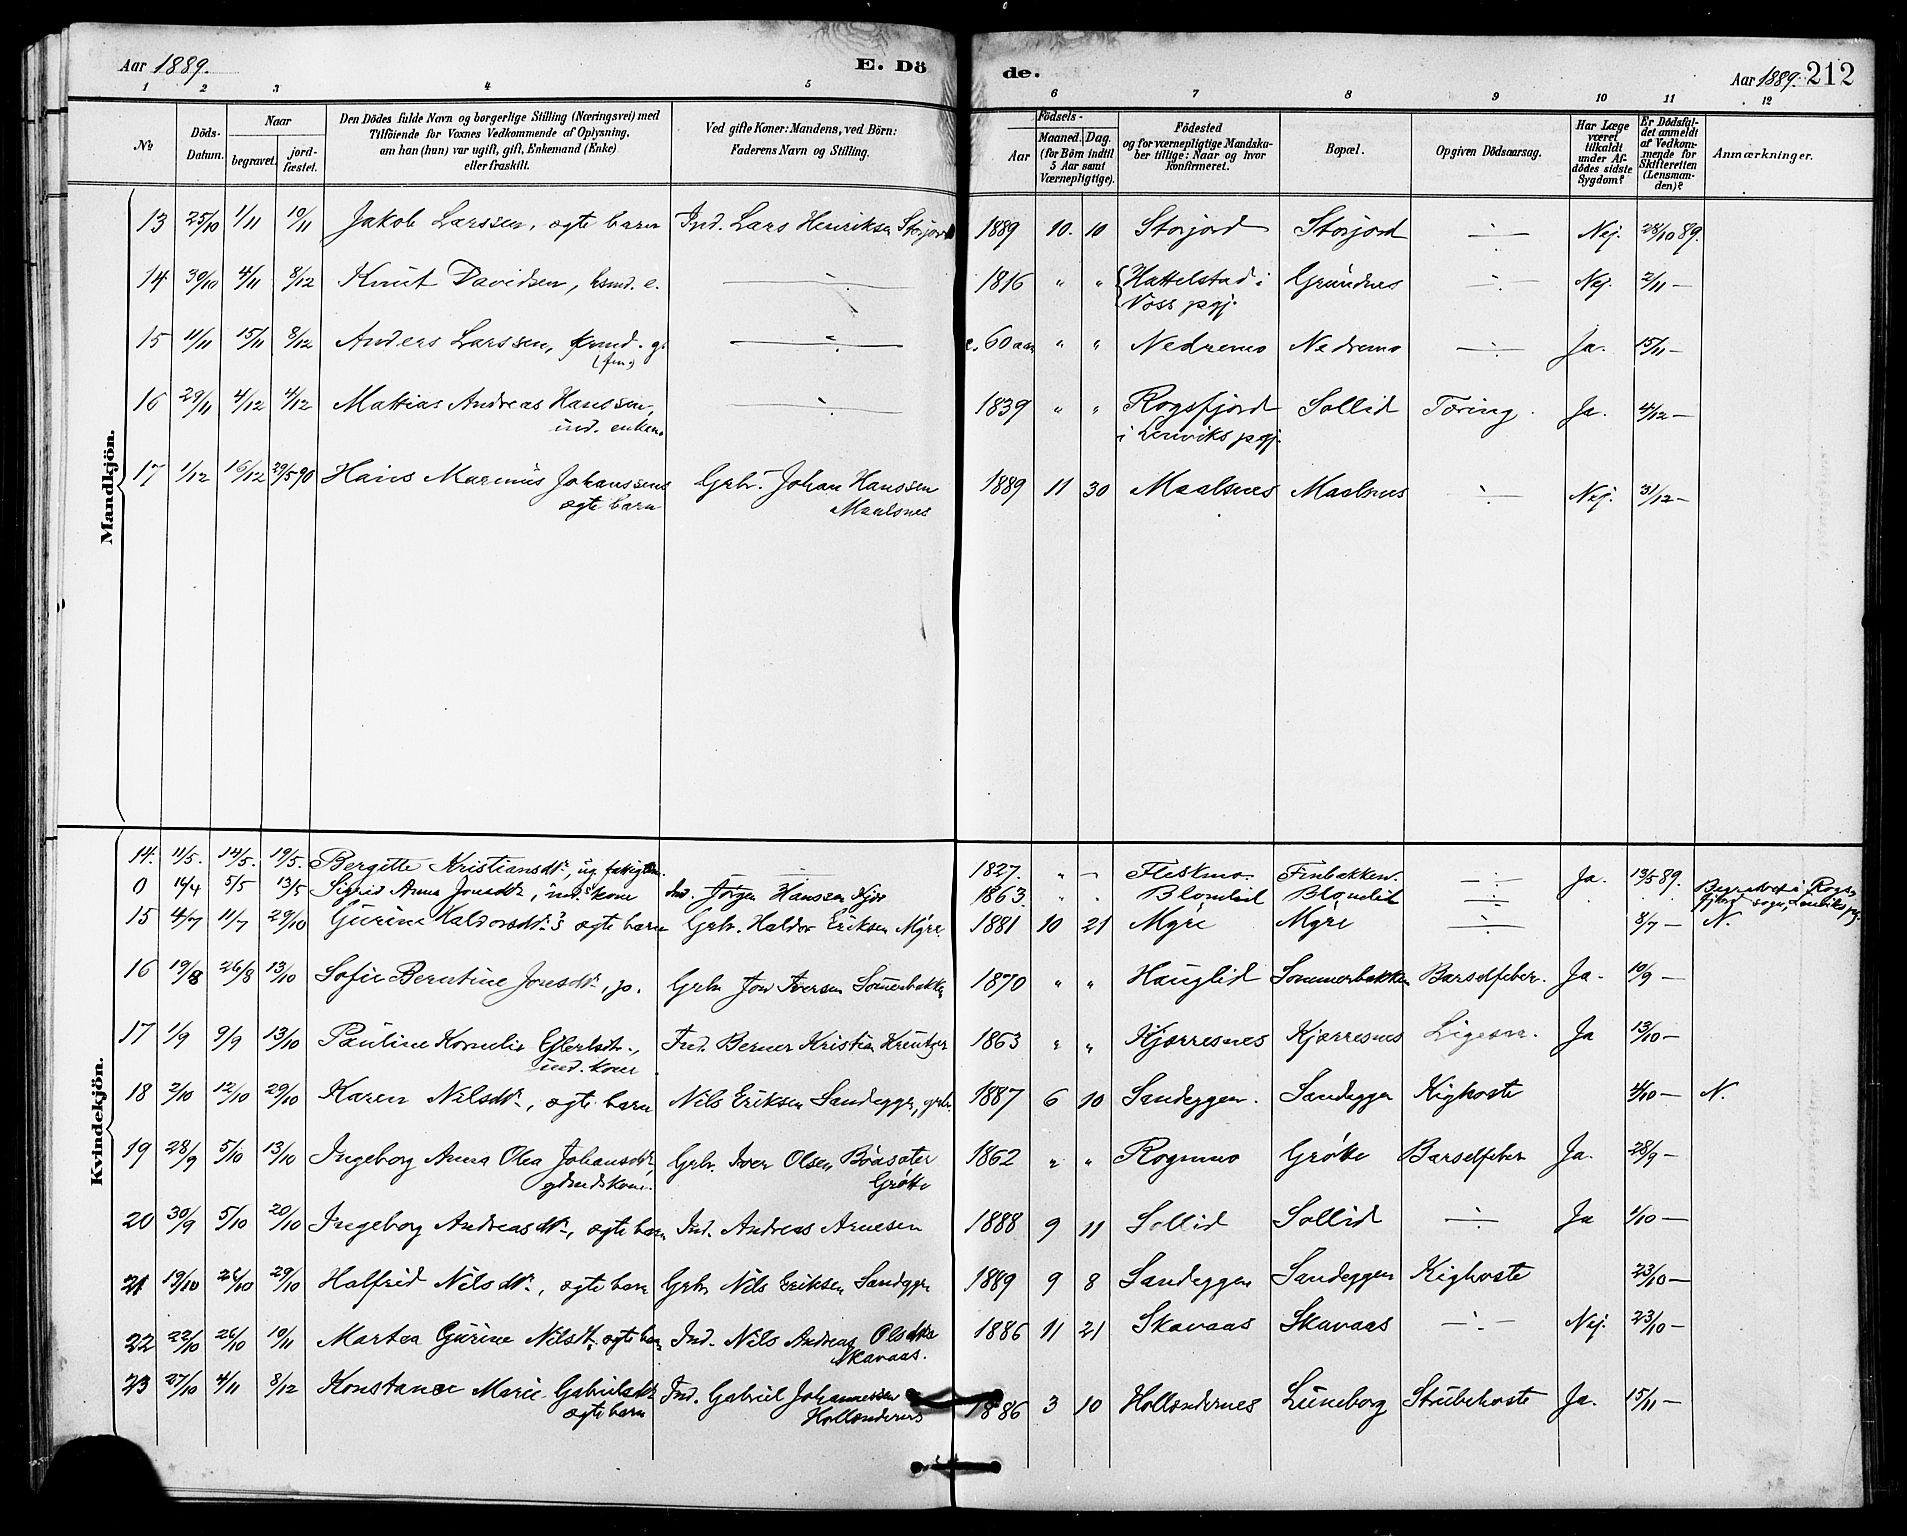 Aar 1889. E. Dö de. Aar 1889. 212
1 2 3 4 5 6 7 8 9 10 11 12
No
Döds-Datum.
Naar
begravet. jord-fæstet.
Den Dödes fulde Navn og borgerlige Stilling (Næringsvei) med
Tilföiende for Voxnes Vedkommende af Oplysning,
om han (hun) var ugift, gift, Enkemand (Enke)
eller fraskilt.
Ved gifte Koner: Mandens, ved Börn:
Faderens Navn og Stilling.
Födsels-
Aar Maaned. Dag.
(for Börn indtil
5 Aar samt
Værnepligtige).
Födested
og for værnepligtige Mandska-
ber tillige: Naar og hvor
konfirmeret.
Bopæl.
Opgiven Dödsaarsag.
Har Læge
været
tilkaldt
under Af-
dödes sidste
Sygdom?
Er Dödsfal-
det anmeldt
af Vedkom-
mende for
Skifteretten
(Lensman-
den)?
Anmærkninger.
Mandkjön.
13 25/10 1/11 10/11 Jakob Larssen, ægte barn Ind. Lars Henriksen Storjord 1889 10. 10 Storjord Storjord -:- Nej. 28/10 89.
14 30/10 4/11 8/12 Knut Davidsen, hsmd. e. -:- 1816 " " Hattelstad i Grundnes -:- Nej. 2/11 —
Voss pgj.
15 11/11 15/11 8/12 Anders Larssen, g. -:- c. 60 aar " " Nedremo Nedremo -:- Ja. 15/11 —
(fin)
16 29/11 4/12 4/12 Mattias Andreas Hanssen, -:- 1839 " " Rogsfjord Sollid Tæring. Ja. 4/12 —
ind. enkem. i Lenviks pgj.
17 1/12 16/12 29/5 90 Hans Marinus Johanssen Grbr. Johan Hanssen 1889 11 30 Maalsnes Maalsnes -:- Nej. 31/12 —
ægte barn Maalsnes
Kvindekjön.
14. 11/5. 14/5. 19/5. Bergitte Kristiansdtr., ug. — 1827. " - Fleskmo. Finbakken. -:- Ja. 13/5 89.
0 16/4 5/5 13/5 Sigrid Anna Jonsdtr., ind.s kone Ind. Jørgen Hansen 1863. " " Blomlid Blomlid -:- Begravet i Rogs-
fjord sogn, Lenviks pgj.
15 4/7 11/7 29/10 Gurine Haldorsdtr. ægte barn Grbr. Haldor Eriksen Myre. 1881 10 21 Myre Myre -:- 8/7 — N.
16 19/8 26/8 13/10 Sofie Berntine Jonsdtr., p. Grbr. Jon Iversen Sommerbakken 1870 " " Hauglid Sommerbakken Barselfeber. Ja. 10/9 —
17 1/9 9/9 13/10 Pauline Kornelie Ind. Berner Kristian Kreutzer 1863 " " Kjærresnes Kjærresnes Ja 13/10 —
ind. kone
18 2/10 12/10 29/10 Karen Nilsdtr., ægte barn Nils Eriksen Sandeggen, grbr. 1887 6 10 Sandeggen. Sandeggen Kighoste 4/10 — N.
19 28/9 5/10 13/10 Ingeborg Anna Olea Johansdtr. Grbr. Iver Olsen 1862 " " Rognmo Grøtte Barselfeber Ja. 28/9 —
Grøtte
20 30/9 5/10 20/10 Ingeborg Andreasdtr., ægte barn Ind. Andreas Arnesen 1888 9 11 Sollid Sollid -:- Ja 1/10 —
21 19/10 26/10 29/10 Halfrid Nilsdtr., ægte barn Grbr Nils Eriksen Sandeggen 1889 9 8 Sandeggen Sandeggen Kighoste 23/10 —
22 22/10 26/10 10/11 Martea Gurine Nilsdtr. ægte barn Ind. Nils Andreas 1886 11 21 Skavaas Skavaas -:- Nej. 23/10 —
Skavaas.
23 27/10 4/11 8/12 Konstance Marie Gabrielsdtr. Ind. Gabriel Johannessen 1886 3 10 Hollændernes Luneborg Strubehoste Ja. 15/11 —
ægte barn Hollændernes